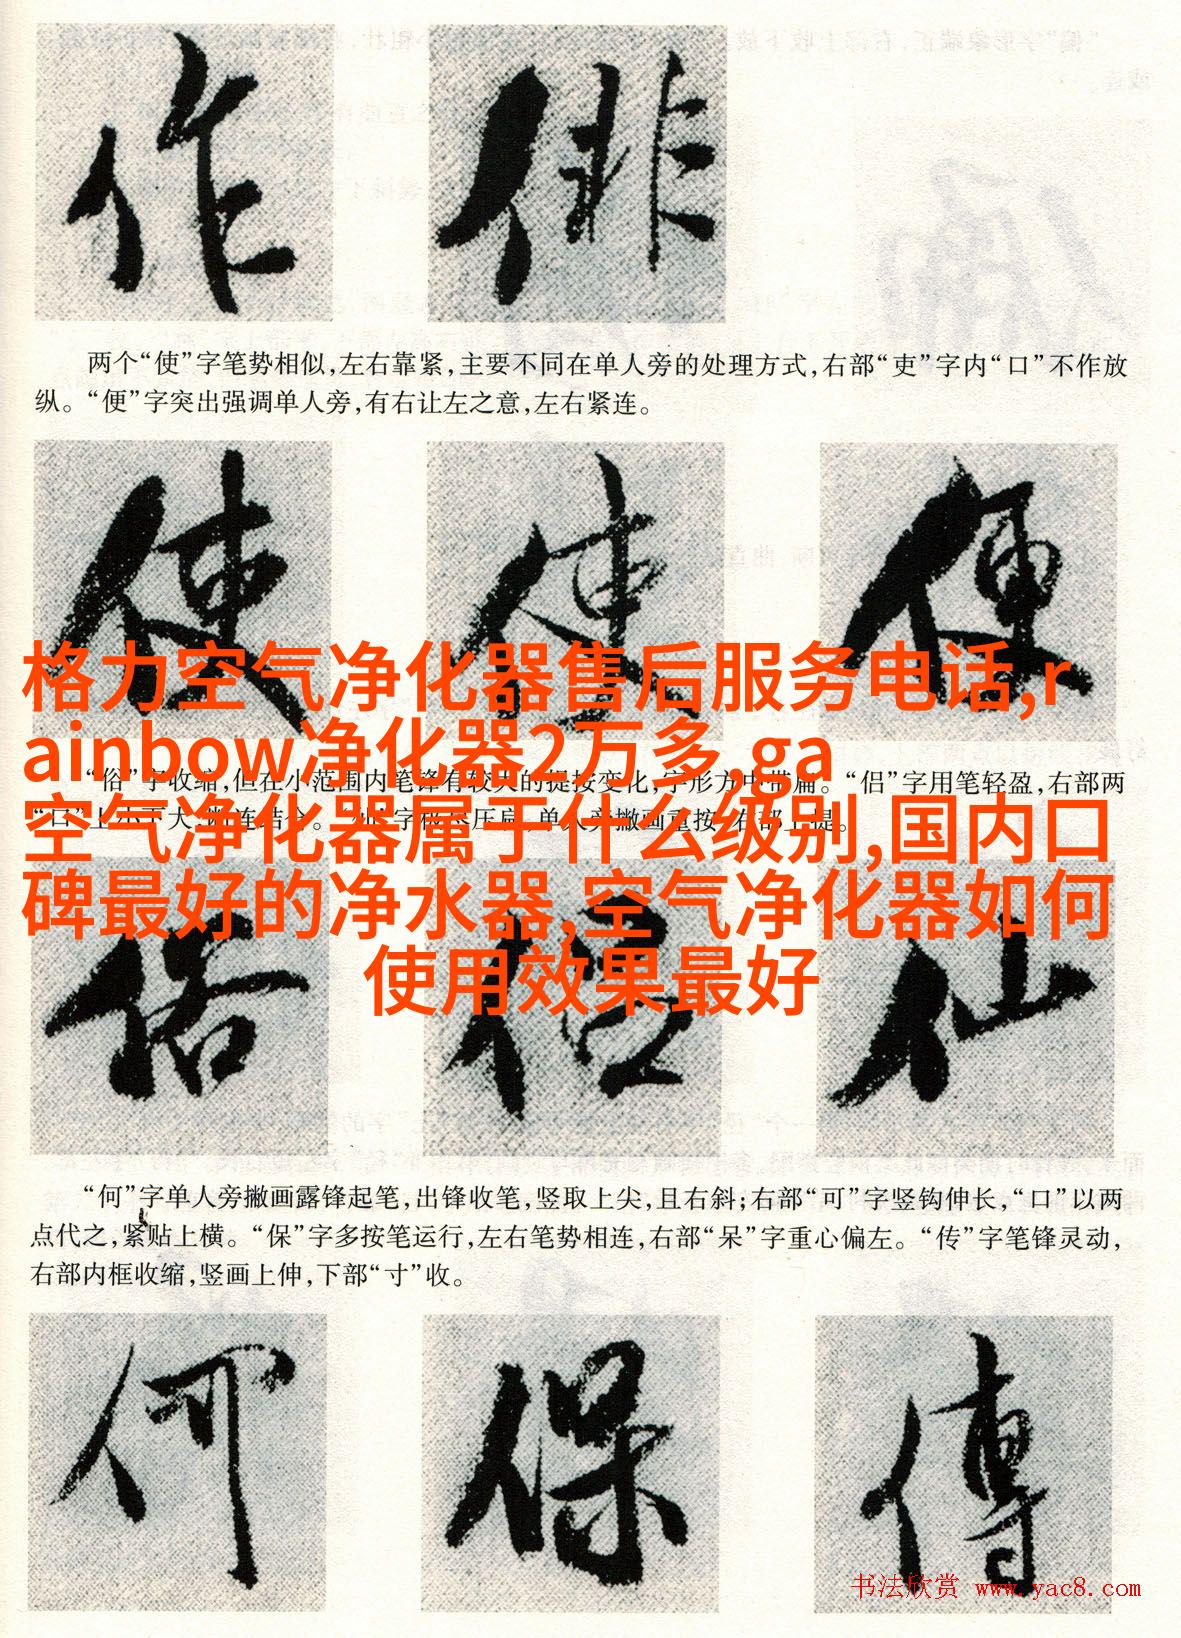 作 俳
两个“使”字笔势相似,左右靠紧,主要不同在单人旁的处理方式,右部“吏”字内“口”不作放
纵。“便”字突出强调单人旁,有右让左之意,左右紧连。
使 使 便
格力空气净化器售后服务电话,r
ainbow净化器2万多,ga
“俗”字收缩,但在小范围内笔锋有较大的提按变化,字形方中带扁。“侣”字用笔轻盈,右部两
空气净化器属于什么级别,国内口
碑最好的净水器,空气净化器如何
使用效果最好
俗 侣 仙
“何”字单人旁撇画露锋起笔,出锋收笔,竖取上尖,且右斜;右部“可”字竖钩伸长,“口”以两
点代之,紧贴上横。“保”字多按笔运行,左右笔势相连,右部“呆”字重心偏左。“传”字笔锋灵动,
右部内框收缩,竖画上伸,下部“寸”收。
何 保 傳
书法欣赏 www.yac8.com